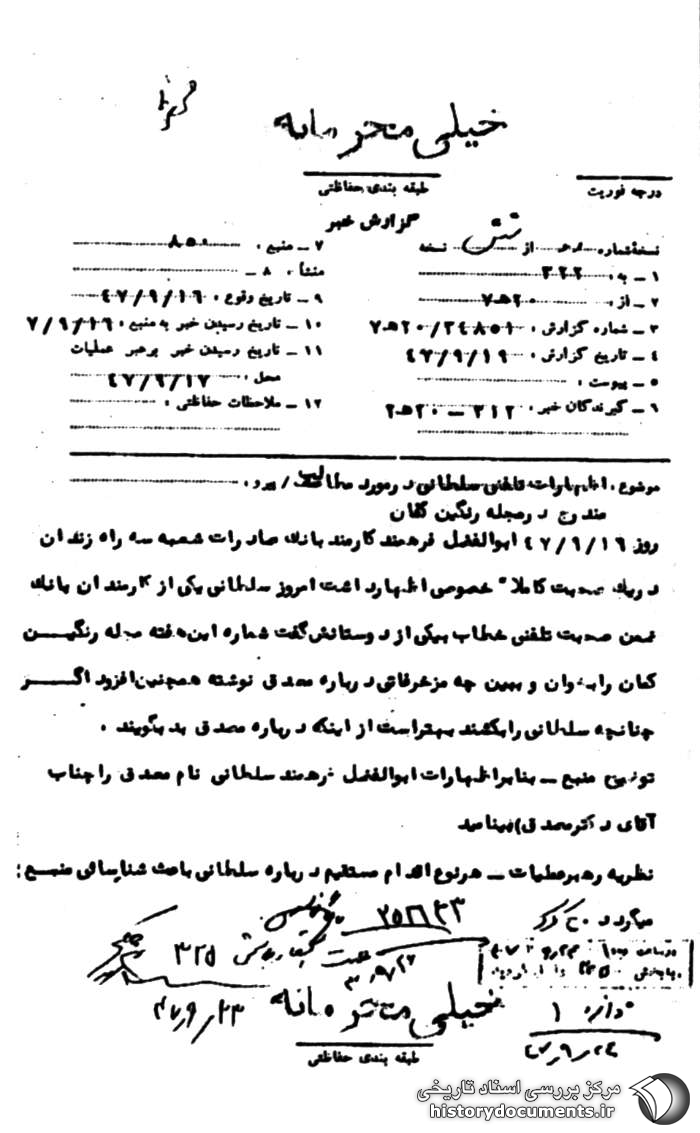 خیلی محرمانه
طبقه بندی حفاظتی
درجه فوریت
گزارش خبر
نسخه شماره از شش نسخه
۱ - به : ۳۲۲
۲ - از : ۲۰ه‍۷
۳ - شماره گزارش : ۲۰/۳۴۸۵۱ه‍۷
۴ - تاریخ گزارش : ۴۷/۹/۱۹
۵ - پیوست :
۶ - گیرندگان خبر : ۳۱۲ - ۲۰ه‍۲
۷ - منبع : ۸۵۰
۸ - منشأ :
۹ - تاریخ وقوع : ۴۷/۹/۱۶
۱۰ - تاریخ رسیدن خبر به منبع : ۷/۹/۱۶
۱۱ - تاریخ رسیدن خبر برهبر عملیات
محل : ۴۷/۹/۱۷
۱۲ - ملاحظات حفاظتی :
موضوع : اظهارات تلفنی سلطانی درمورد مطالب / پیرو :
مندرج درمجله رنگین کمان
روز ۴۷/۹/۱۶ ابوالفضل فرهمند کارمند بانک صادرات شعبه سه راه زندان
دریک صحبت کاملا" خصوصی اظهارداشت امروز سلطانی یکی از کارمندان بانک
ضمن صحبت تلفنی خطاب بیکی از دوستانش گفت شماره این هفته مجله رنگیـــن
کمان رابخوان و ببین چه مزخرفاتی درباره مصدق نوشته همچنین افزود اگــــر
چنانچه سلطانی رابکشند بهتراست از اینکه درباره مصدق بد بگویند .
توضیح منبع - بنابر اظهارات ابوالفضل فرهمند سلطانی نام مصدق را جناب
آقای دکتر مصدق) مینامید
نظریه رهبرعملیات - هرنوع اقدام مستقیم درباره سلطانی باعث شناسائی منبـع :
میگردد
۳۲۵
۴۷/۹/۲۳
خیلی محرمانه
طبقه بندی حفاظتی
۱
۴۷/۹/۲۴
مرکز بررسی اسناد تاریخی
historydocuments.ir